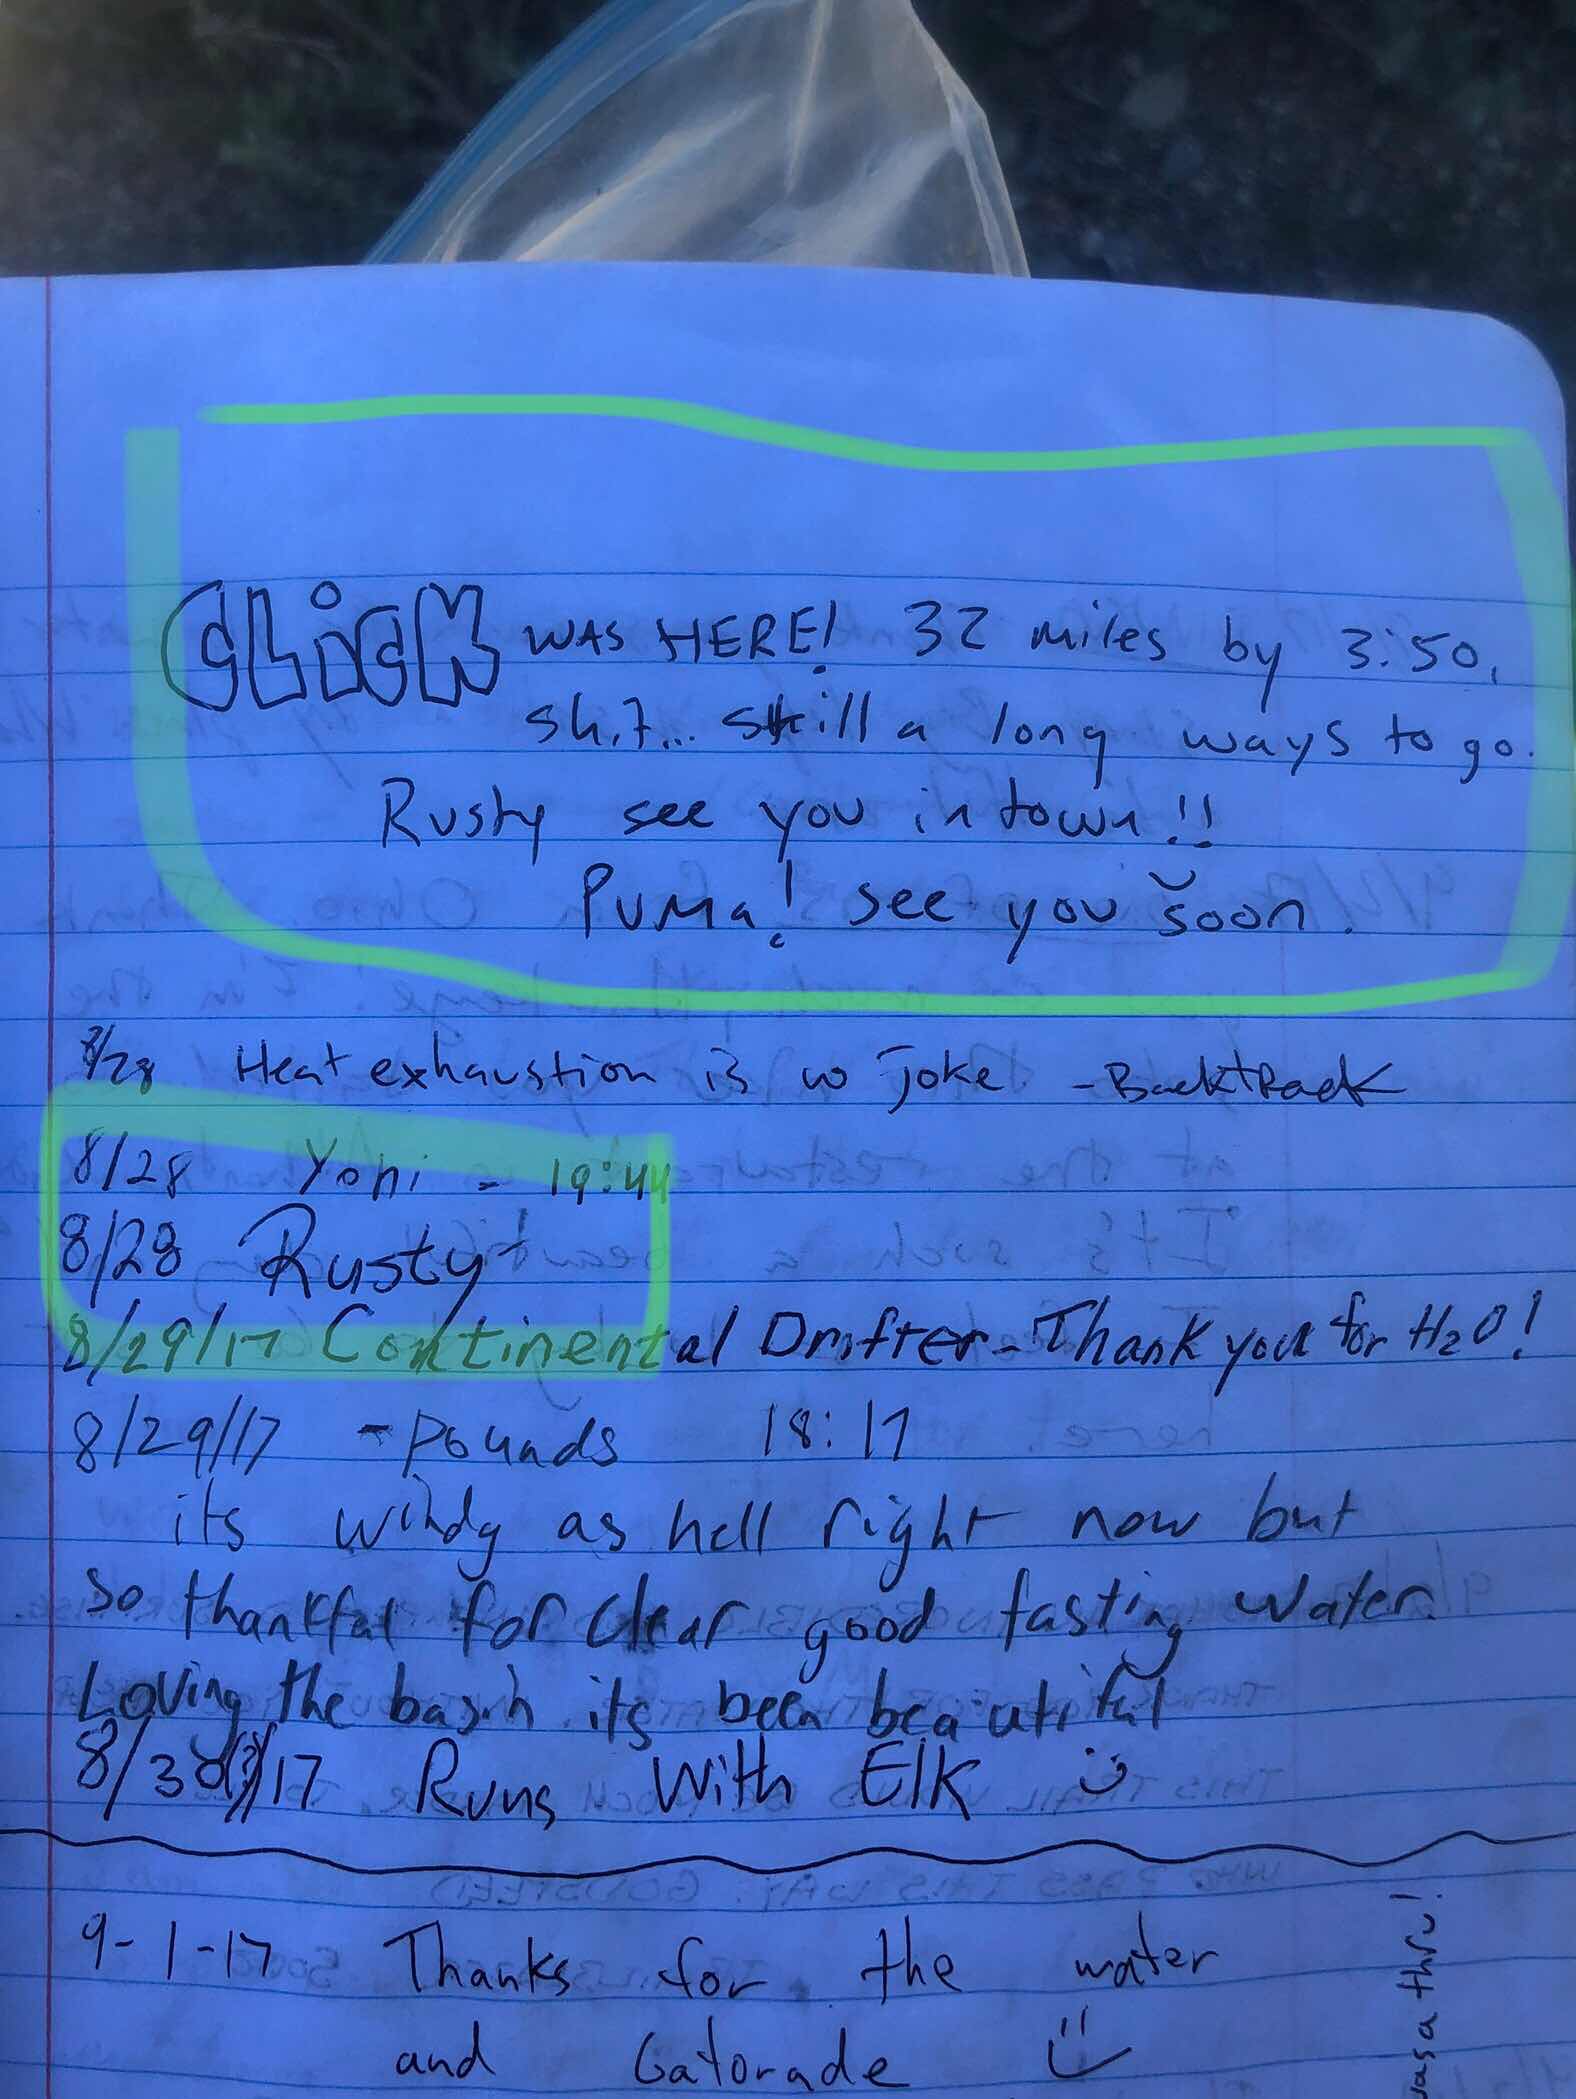 CLiCK WAS HERE! 32 miles by 3:50,
shit... still a long ways to go.
Rusty see you in town!!
PUMa! see you soon.
8/28 Heat exhaustion is no joke -BacktRack
8/28 Yoni - 19:44
8/28 Rusty
8/29/17 Continental Drifter - Thank you for H2O!
8/29/17 - Pounds 18:17
its windy as hell right now but
so thankful for clear good tasting water.
Loving the basin its been beautiful
8/30(?)/17 Runs With Elk
9-1-17 Thanks for the water
and Gatorade
was a thru!